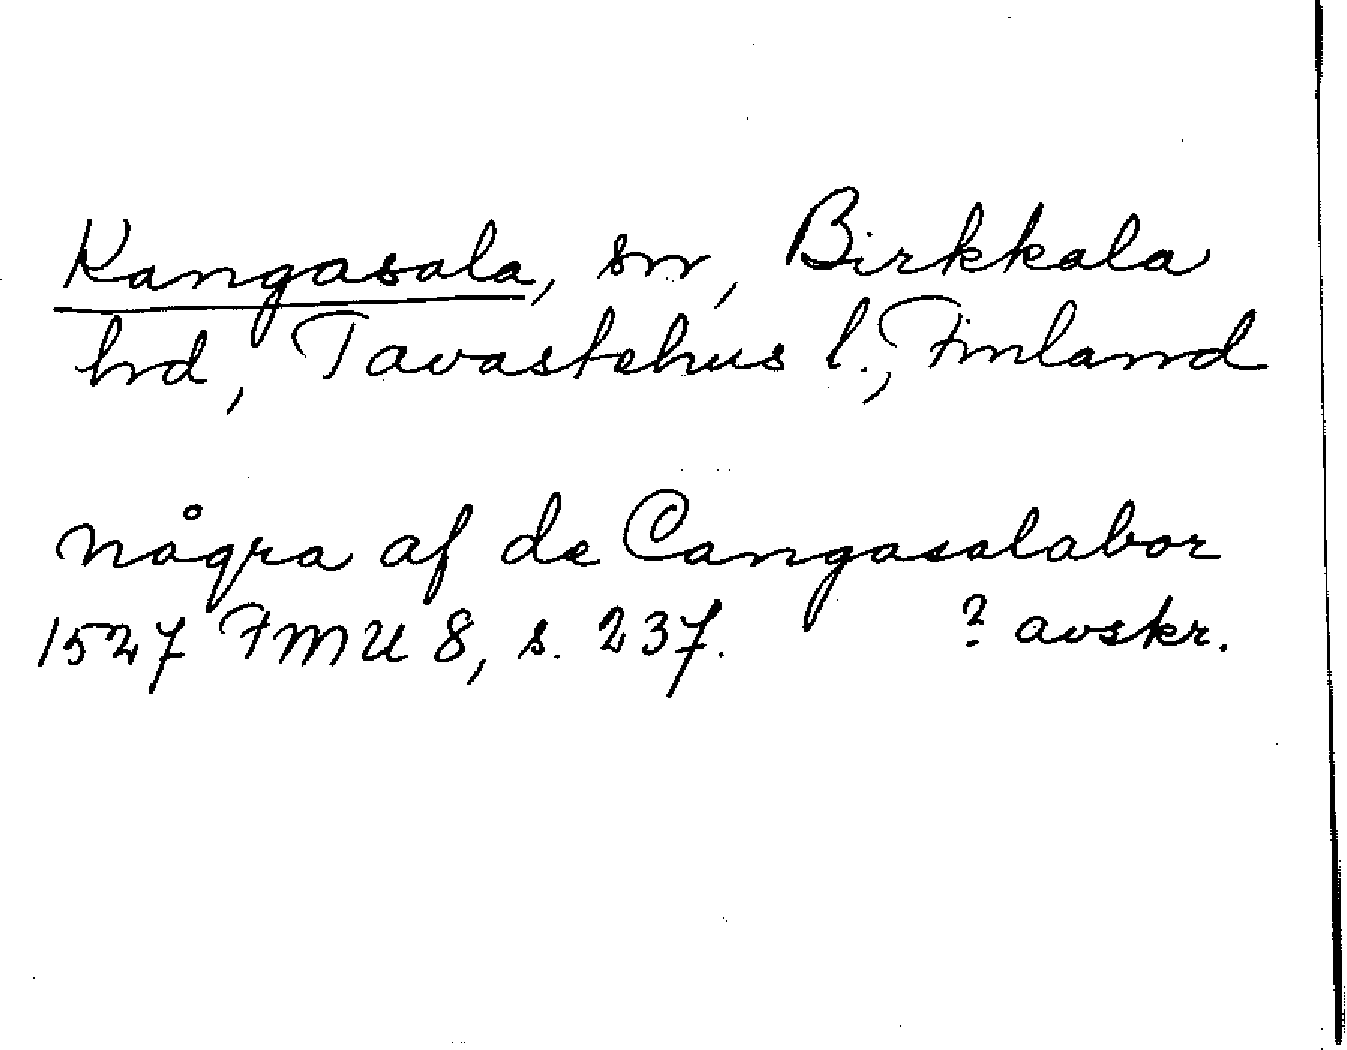 Kangasala, sn, Birkkala
hd, Tavastehus l., Finland
några af de Cangasalabor
1527 FMU 8, s. 237. ? avskr.